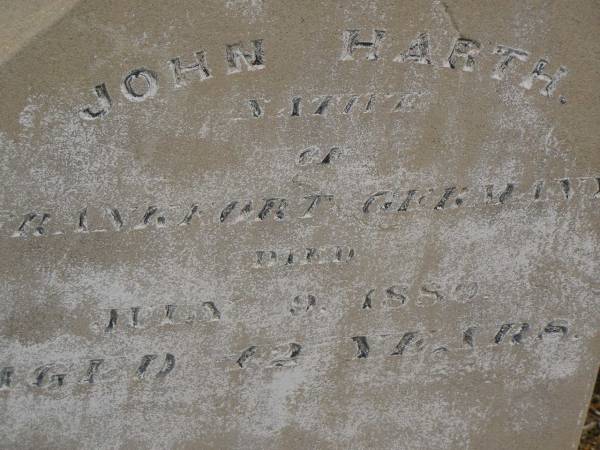 JOHN HARTH.
NATIVE
OF
FRANKFORT GERMANY
DIED
JULY 9, 1889
AGED 42 YEARS.